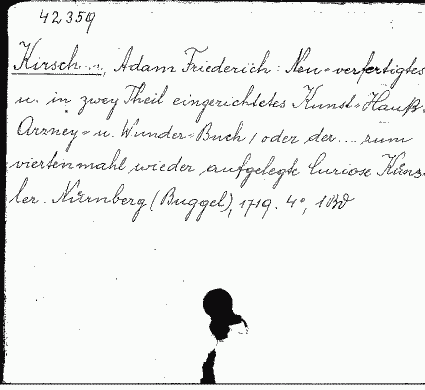 42359
Kirsch..., Adam Friederich: Neu-verfertigtes
u. in zwey Theil eingerichtetes Kunst-Hauß-
Arzney- u. Wunder-Buch / oder der .... zum
viertenmahl wieder aufgelegte Curiose Künst-
ler. Nürnberg (Buggel), 1719. 4°, 1 Bd